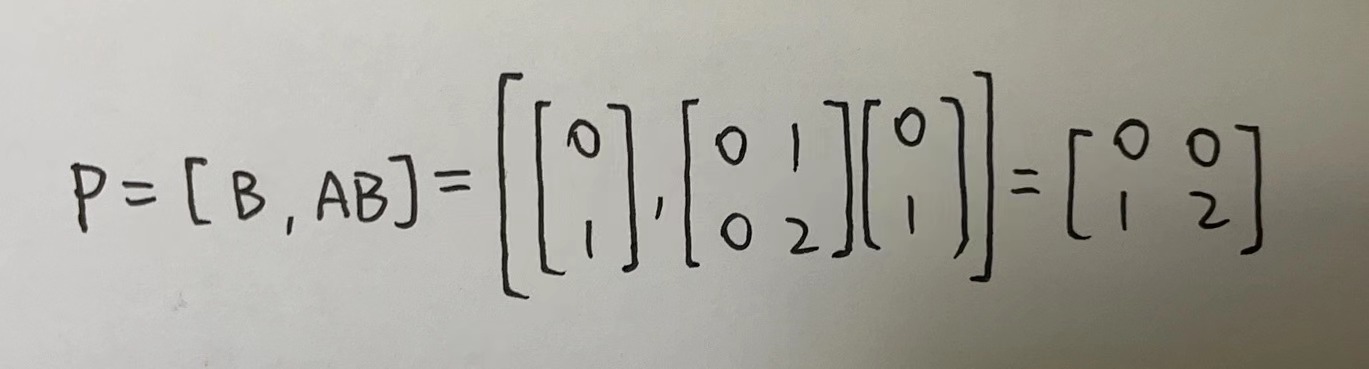 P = [B, AB] = [[0 1], [0 1 0 2][0 1]] = [0 0 1 2]